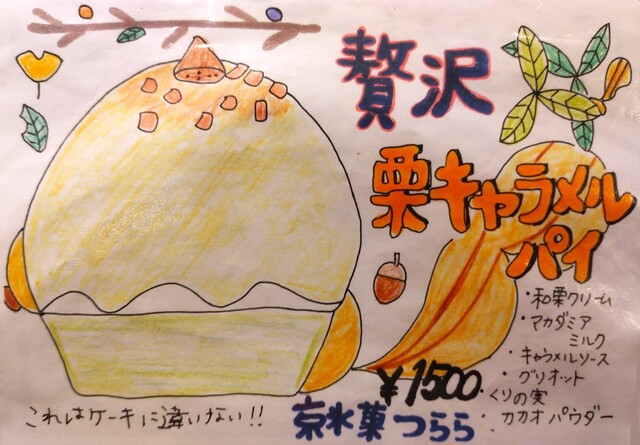 贅沢
栗キャラメル
パイ
・和栗クリーム
・マカダミア
ミルク
・キャラメルソース
・グリオット
・くりの実
・カカオパウダー
¥1500
これはケーキに違いない!!
京氷菓つらら